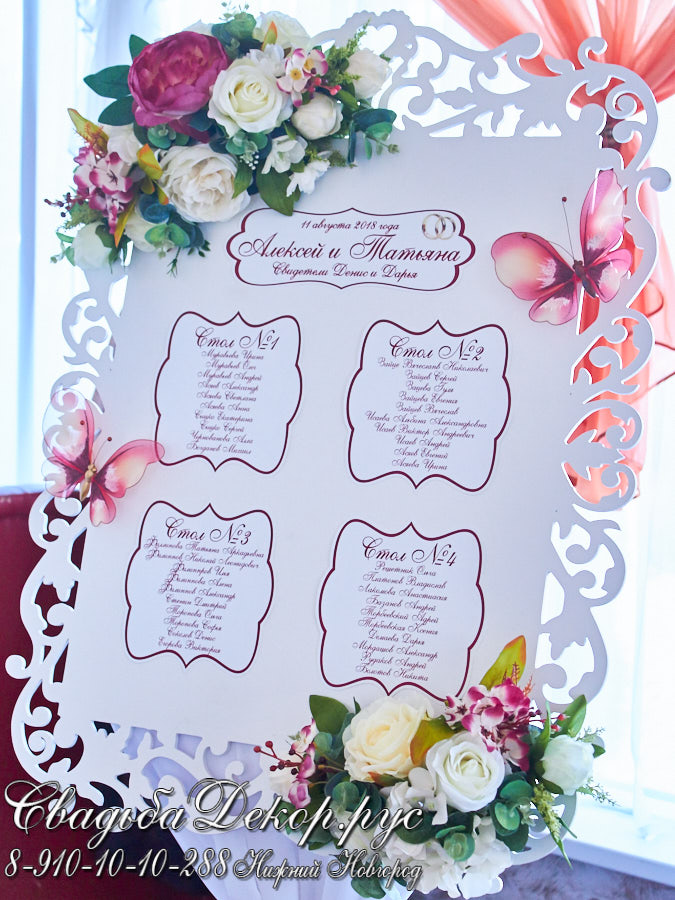 11 августа 2018 года
Алексей и Татьяна
Свидетели Денис и Дарья
Стол №1
Муравьева Ирина
Муравьев Олег
Муравьев Андрей
Асеев Александр
Асеева Светлана
Асеева Анна
Сизько Екатерина
Сизько Сергей
Черновалова Алла
Богданов Михаил
Стол №2
Зайцев Вячеслав Николаевич
Зайцев Сергей
Зайцева
Зайцева Евгения
Зайцев Вячеслав
Исаева Альбина Александровна
Исаев Виктор Андреевич
Исаев Андрей
Асеев Евгений
Асеева Ирина
Стол №3
Филиппова Татьяна Аркадьевна
Филиппов Николай Леонидович
Филиппова
Филиппова Алена
Филиппов Александр
Степин Дмитрий
Торопова Ольга
Торопова Софья
Соколов Денис
Егорова Виктория
Стол №4
Решетник Ольга
Платонов Владислав
Лакомова Анастасия
Базанов Андрей
Торбеевский Андрей
Торбеевская Ксения
Дарья
Мордашов Александр
Рудаков Андрей
Болотов Никита
СвадьбаДекор.рус
8-910-10-10-288 Нижний Новгород